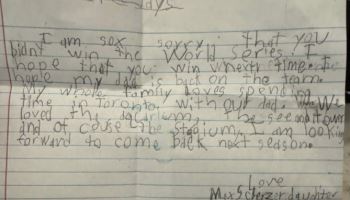 days
I am sox sorry that you
Didnt win the World Series. I
hope that you win whexn time. I
hople my dad is back on the team.
My whole family loves spending
time in Toronto, with our dad. We
loved the the
and of couse the stadium. I am looking
forward to come back next season.
Love
Max Scherzer daughter